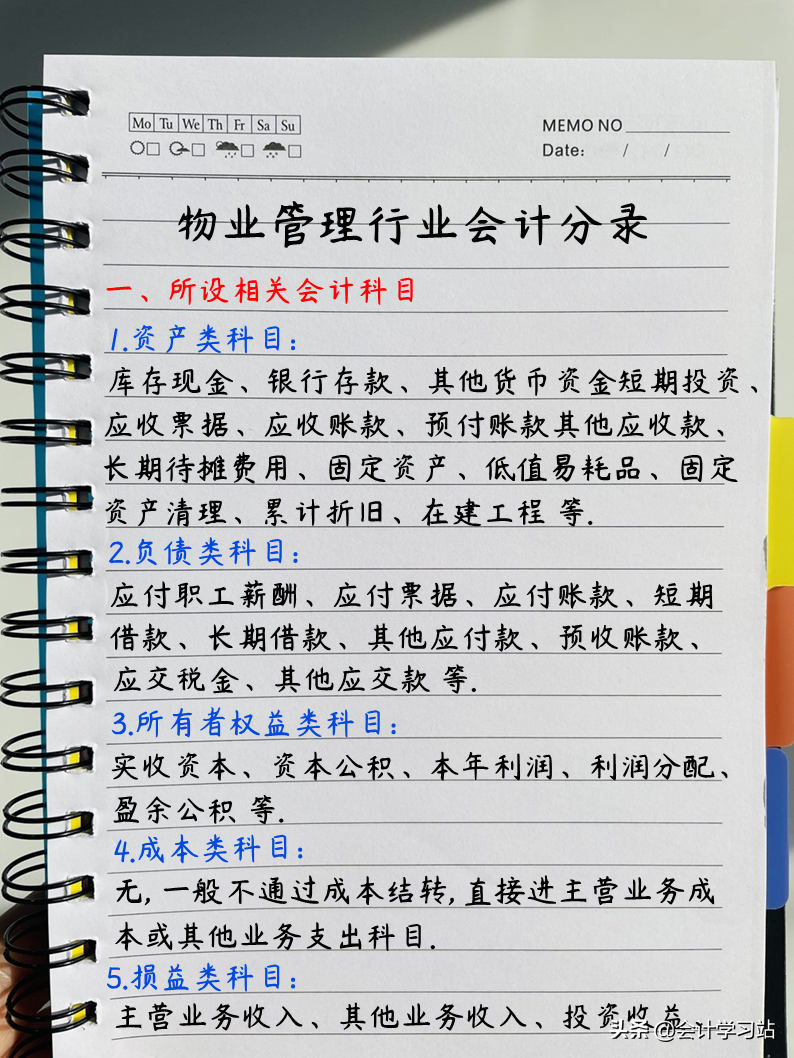 Mo Tu We Th Fr Sa Su
MEMO NO
Date: / /
物业管理行业会计分录
一、所设相关会计科目
1.资产类科目:
库存现金、银行存款、其他货币资金短期投资、
应收票据、应收账款、预付账款其他应收款、
长期待摊费用、固定资产、低值易耗品、固定
资产清理、累计折旧、在建工程 等.
2.负债类科目:
应付职工薪酬、应付票据、应付账款、短期
借款、长期借款、其他应付款、预收账款、
应交税金、其他应交款 等.
3.所有者权益类科目:
实收资本、资本公积、本年利润、利润分配、
盈余公积 等.
4.成本类科目:
无,一般不通过成本结转,直接进主营业务成
本或其他业务支出科目.
5.损益类科目:
主营业务收入、其他业务收入、投资收益、
头条 @会计学习站